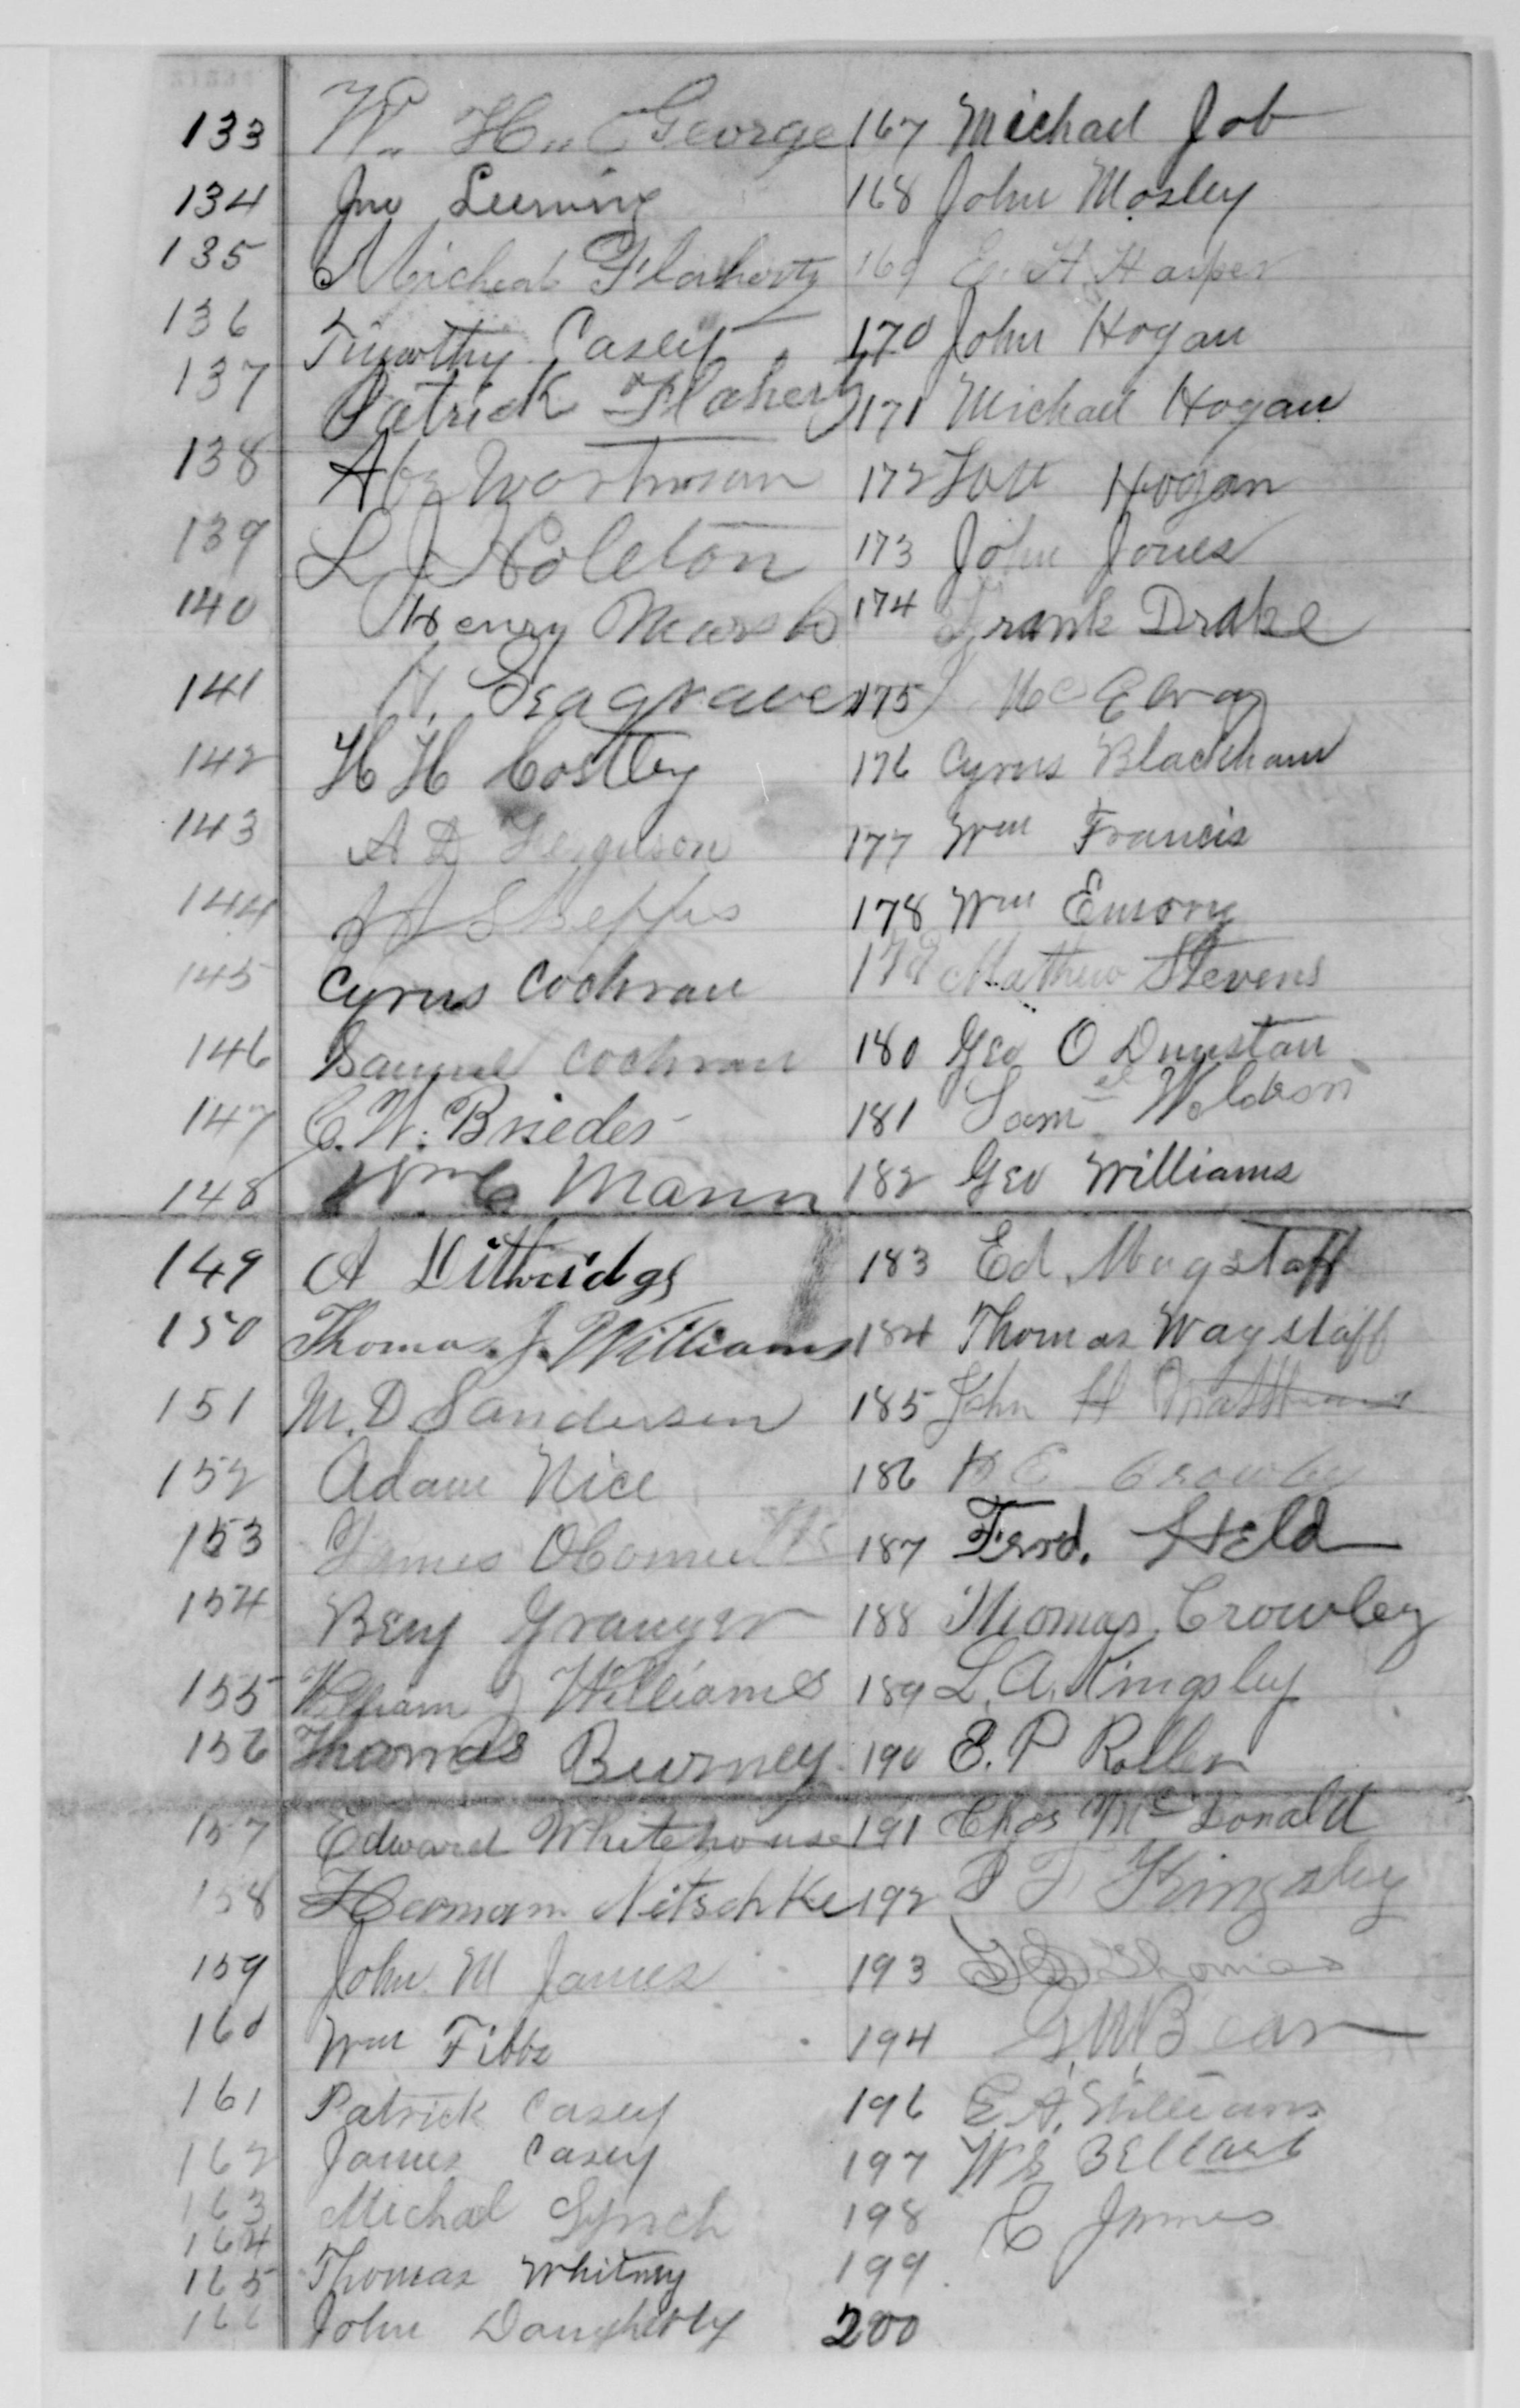 133 Wm. H. George
134 Jno Leeming
135 Micheal Flaherty
136 Timothy Casey
137 Patrick Flaherty
138 Abe Workman
139 L J Noleton
140 Henry Marsh
141 H. Seagraves
142 H H Costley
143 A D Ferguson
144
145 Cyrus Cochran
146 Samuel Cochran
147 C. W. Briedes
148 Wm C Mann
149 A Dithridge
150 Thomas J. Williams
151 M. D. Sanderson
152 Adam Nice
153 James OConnell
154 Benj Granger
155 William J Williams
156 Thomas Burney
157 Edward Whitehouse
158 Herman Nitschke
159 John M James
160 Wm Fibbs
161 Patrick Casey
162 James Casey
163 Michal Lynch
164
165 Thomas Whitney
166 John Dougherty
167 Michael Job
168 John Mosley
169 E. H. Harper
170 John Hogan
171 Michael Hogan
172 Hogan
173 John Jones
174 Frank Drake
175 J McElvay
176 Cyrus Blackham
177 Wm Francis
178 Wm Emory
179 Mathew Stevens
180 Geo O Dunstan
181 Saml Weldon
182 Geo Williams
183 Ed Wagstaff
184 Thomas Wagstaff
185 John H Matthews
186 E Crowley
187 Ferd. Held
188 Thomas Crowley
189 L. A. Kingsley
190 E. P Roller
191 Chas McDonald
192 P F Kingsley
193 Thomas
194 G. W. Bear
196 E. A. Williams
197
198 C James
199
200